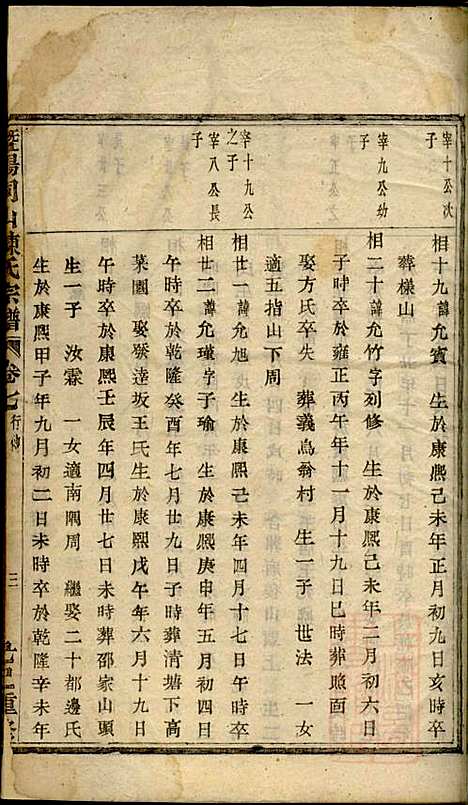 宰十公次子
相十九諱允賓 生於康熙己未年正月初九日亥時卒
葬樣山
宰九公幼子
相二十諱允竹字列修 生於康熙己未年二月初六日
子時卒於雍正丙午年十一月十九日巳時葬照面
娶方氏卒失 葬義烏翁村 生一子 世法 一女
適五指山下周
宰十九公之子
相廿一諱允旭 生於康熙己未年四月十七日午時卒
宰八公長子
相廿二諱允瑾字子瑜 生於康熙庚申年五月初四日
午時卒於乾隆癸酉年七月廿九日子時葬清塘下高
菜園 娶發達坂王氏生於康熙戊午年六月十九日
午時卒於康熙壬辰年四月廿七日未時葬邵家山頭
生一子 汝霖 一女適南隅周 繼娶二十都邊氏
生於康熙甲子年九月初二日未時卒於乾隆辛未年
暨陽同山陳氏宗譜 卷七 行傳 三